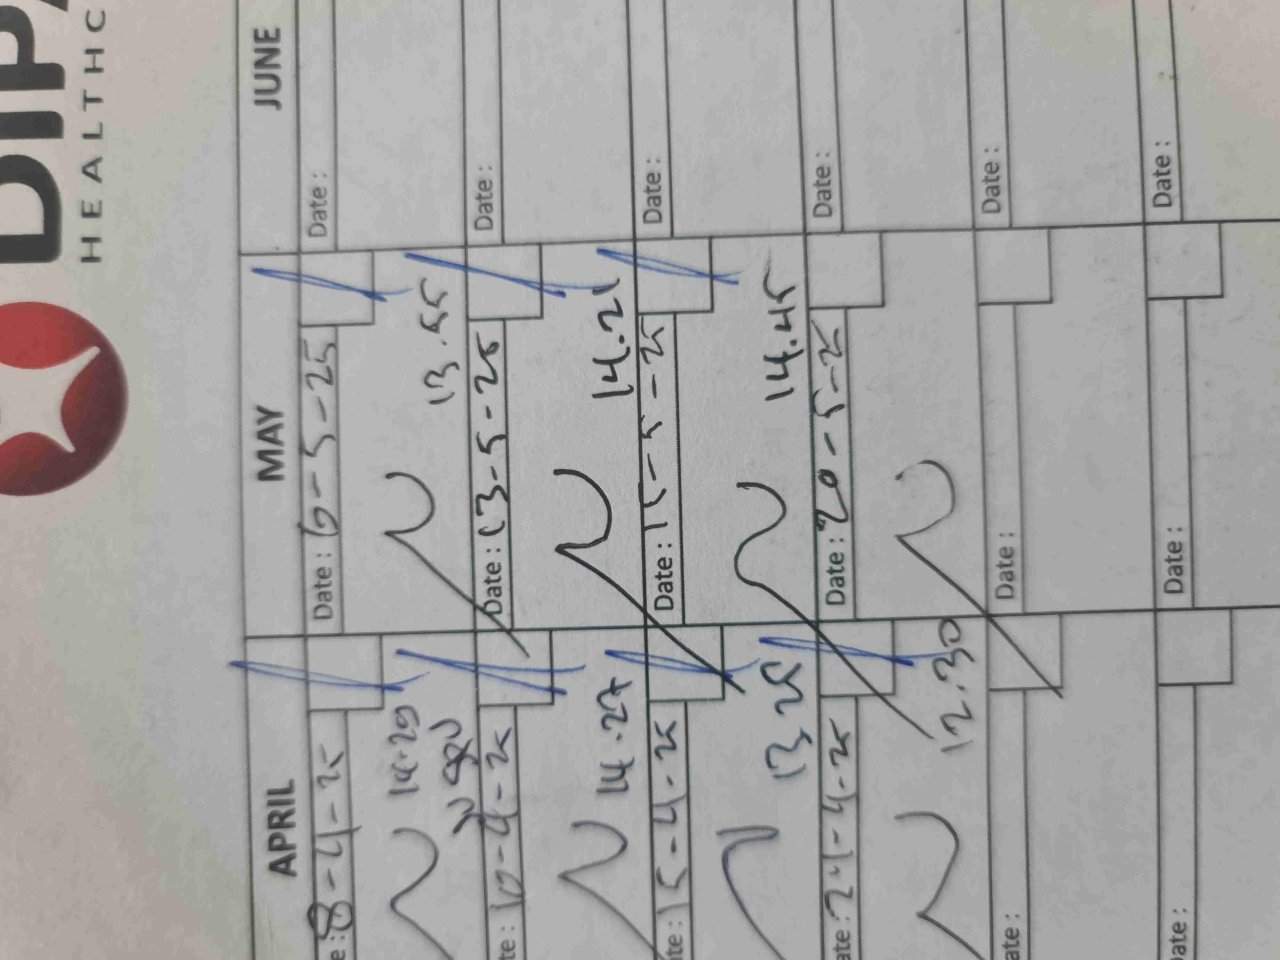 DIPA
HEALTHC
APRIL MAY JUNE
e: 8-4-25 Date: 6-5-25 Date:
14.29 13.55
te: 10-4-25 Date: 13-5-25 Date:
14.27 14.21
ite: 15-4-25 Date: 15-5-25 Date:
13.25 14.45
ate: 24-4-25 Date: 20-5-25 Date:
12.30
ate: Date: Date:
ate: Date: Date: